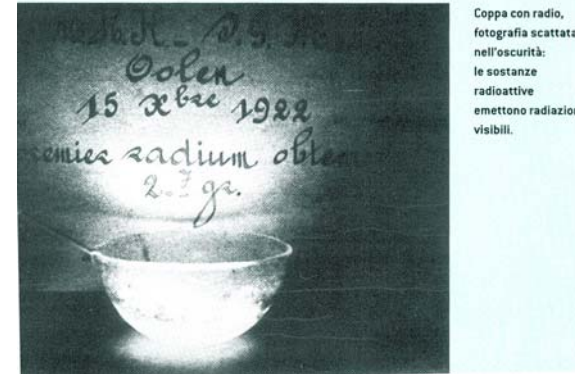 Oolen
15 Xbre 1922
radium
2.7 gr.
Coppa con radio,
fotografia scattata
nell'oscurità:
le sostanze
radioattive
emettono radiazion
visibili.